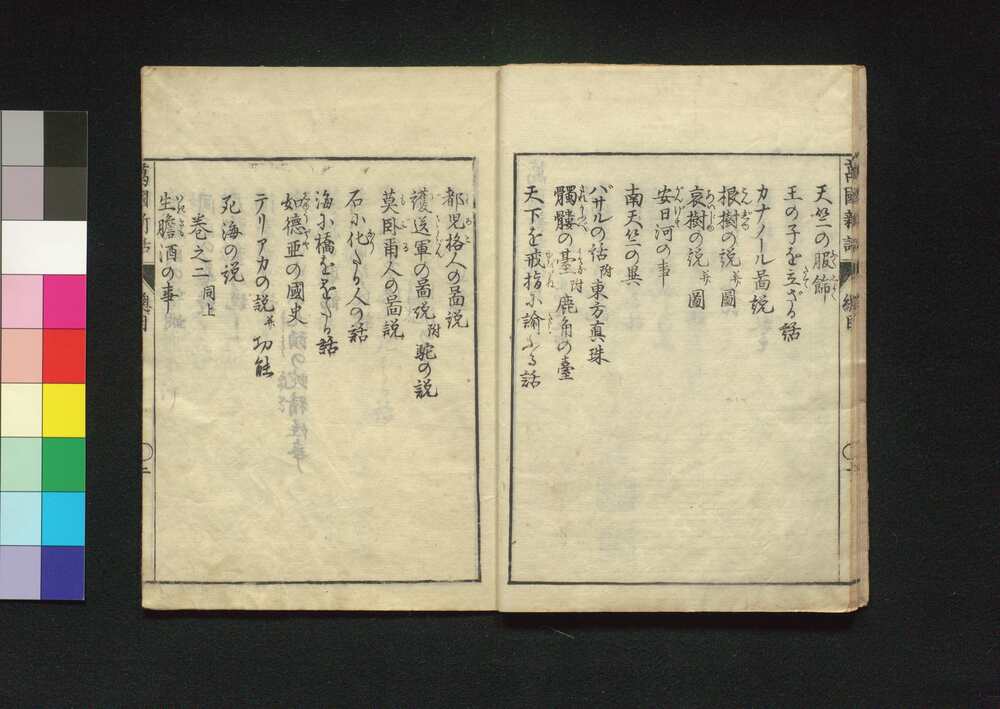 萬國新話
總目
天竺の服飾
王の子を立ざる話
カナノール啚説
根樹の説 并圖
哀樹の説 并圖
安日河の事
南天竺の異
バサルの話 附東方真珠
髑髏の臺 附鹿角の臺
天下を戒指に諭ふる話
都児格人の啚説
護送軍の啚説 附駝の説
莫卧爾人の啚説
石に化たる人の話
海に橋をわたる話
如德亜の國史
テリアカの説 并功能
死海の説
巻之二 同上
生膽酒の事
萬國新話
總目